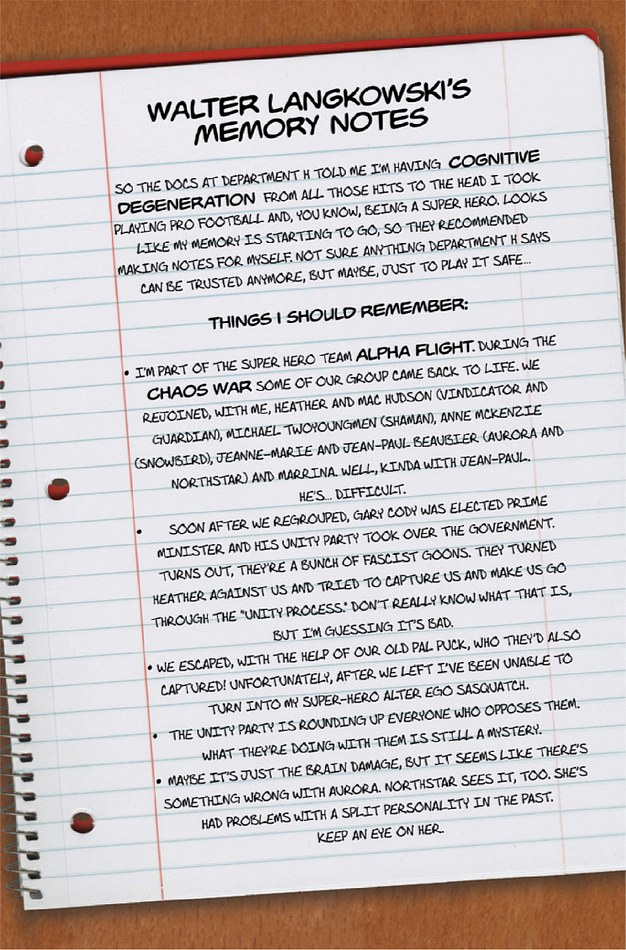 WALTER LANGKOWSKI'S
MEMORY NOTES
SO THE DOCS AT DEPARTMENT H TOLD ME I'M HAVING COGNITIVE
DEGENERATION FROM ALL THOSE HITS TO THE HEAD I TOOK
PLAYING PRO FOOTBALL AND, YOU KNOW, BEING A SUPER HERO. LOOKS
LIKE MY MEMORY IS STARTING TO GO, SO THEY RECOMMENDED
MAKING NOTES FOR MYSELF. NOT SURE ANYTHING DEPARTMENT H SAYS
CAN BE TRUSTED ANYMORE, BUT MAYBE, JUST TO PLAY IT SAFE...
THINGS I SHOULD REMEMBER:
• I'M PART OF THE SUPER HERO TEAM ALPHA FLIGHT. DURING THE
CHAOS WAR SOME OF OUR GROUP CAME BACK TO LIFE. WE
REJOINED, WITH ME, HEATHER AND MAC HUDSON (VINDICATOR AND
GUARDIAN), MICHAEL TWOYOUNGMEN (SHAMAN), ANNE MCKENZIE
(SNOWBIRD), JEANNE-MARIE AND JEAN-PAUL BEAUBIER (AURORA AND
NORTHSTAR) AND MARRINA. WELL, KINDA WITH JEAN-PAUL.
HE'S... DIFFICULT.
• SOON AFTER WE REGROUPED, GARY CODY WAS ELECTED PRIME
MINISTER AND HIS UNITY PARTY TOOK OVER THE GOVERNMENT.
TURNS OUT, THEY'RE A BUNCH OF FASCIST GOONS. THEY TURNED
HEATHER AGAINST US AND TRIED TO CAPTURE US AND MAKE US GO
THROUGH THE "UNITY PROCESS." DON'T REALLY KNOW WHAT THAT IS,
BUT I'M GUESSING IT'S BAD.
• WE ESCAPED, WITH THE HELP OF OUR OLD PAL PUCK, WHO THEY'D ALSO
CAPTURED! UNFORTUNATELY, AFTER WE LEFT I'VE BEEN UNABLE TO
TURN INTO MY SUPER-HERO ALTER EGO SASQUATCH.
• THE UNITY PARTY IS ROUNDING UP EVERYONE WHO OPPOSES THEM.
WHAT THEY'RE DOING WITH THEM IS STILL A MYSTERY.
• MAYBE IT'S JUST THE BRAIN DAMAGE, BUT IT SEEMS LIKE THERE'S
SOMETHING WRONG WITH AURORA. NORTHSTAR SEES IT, TOO. SHE'S
HAD PROBLEMS WITH A SPLIT PERSONALITY IN THE PAST.
KEEP AN EYE ON HER.